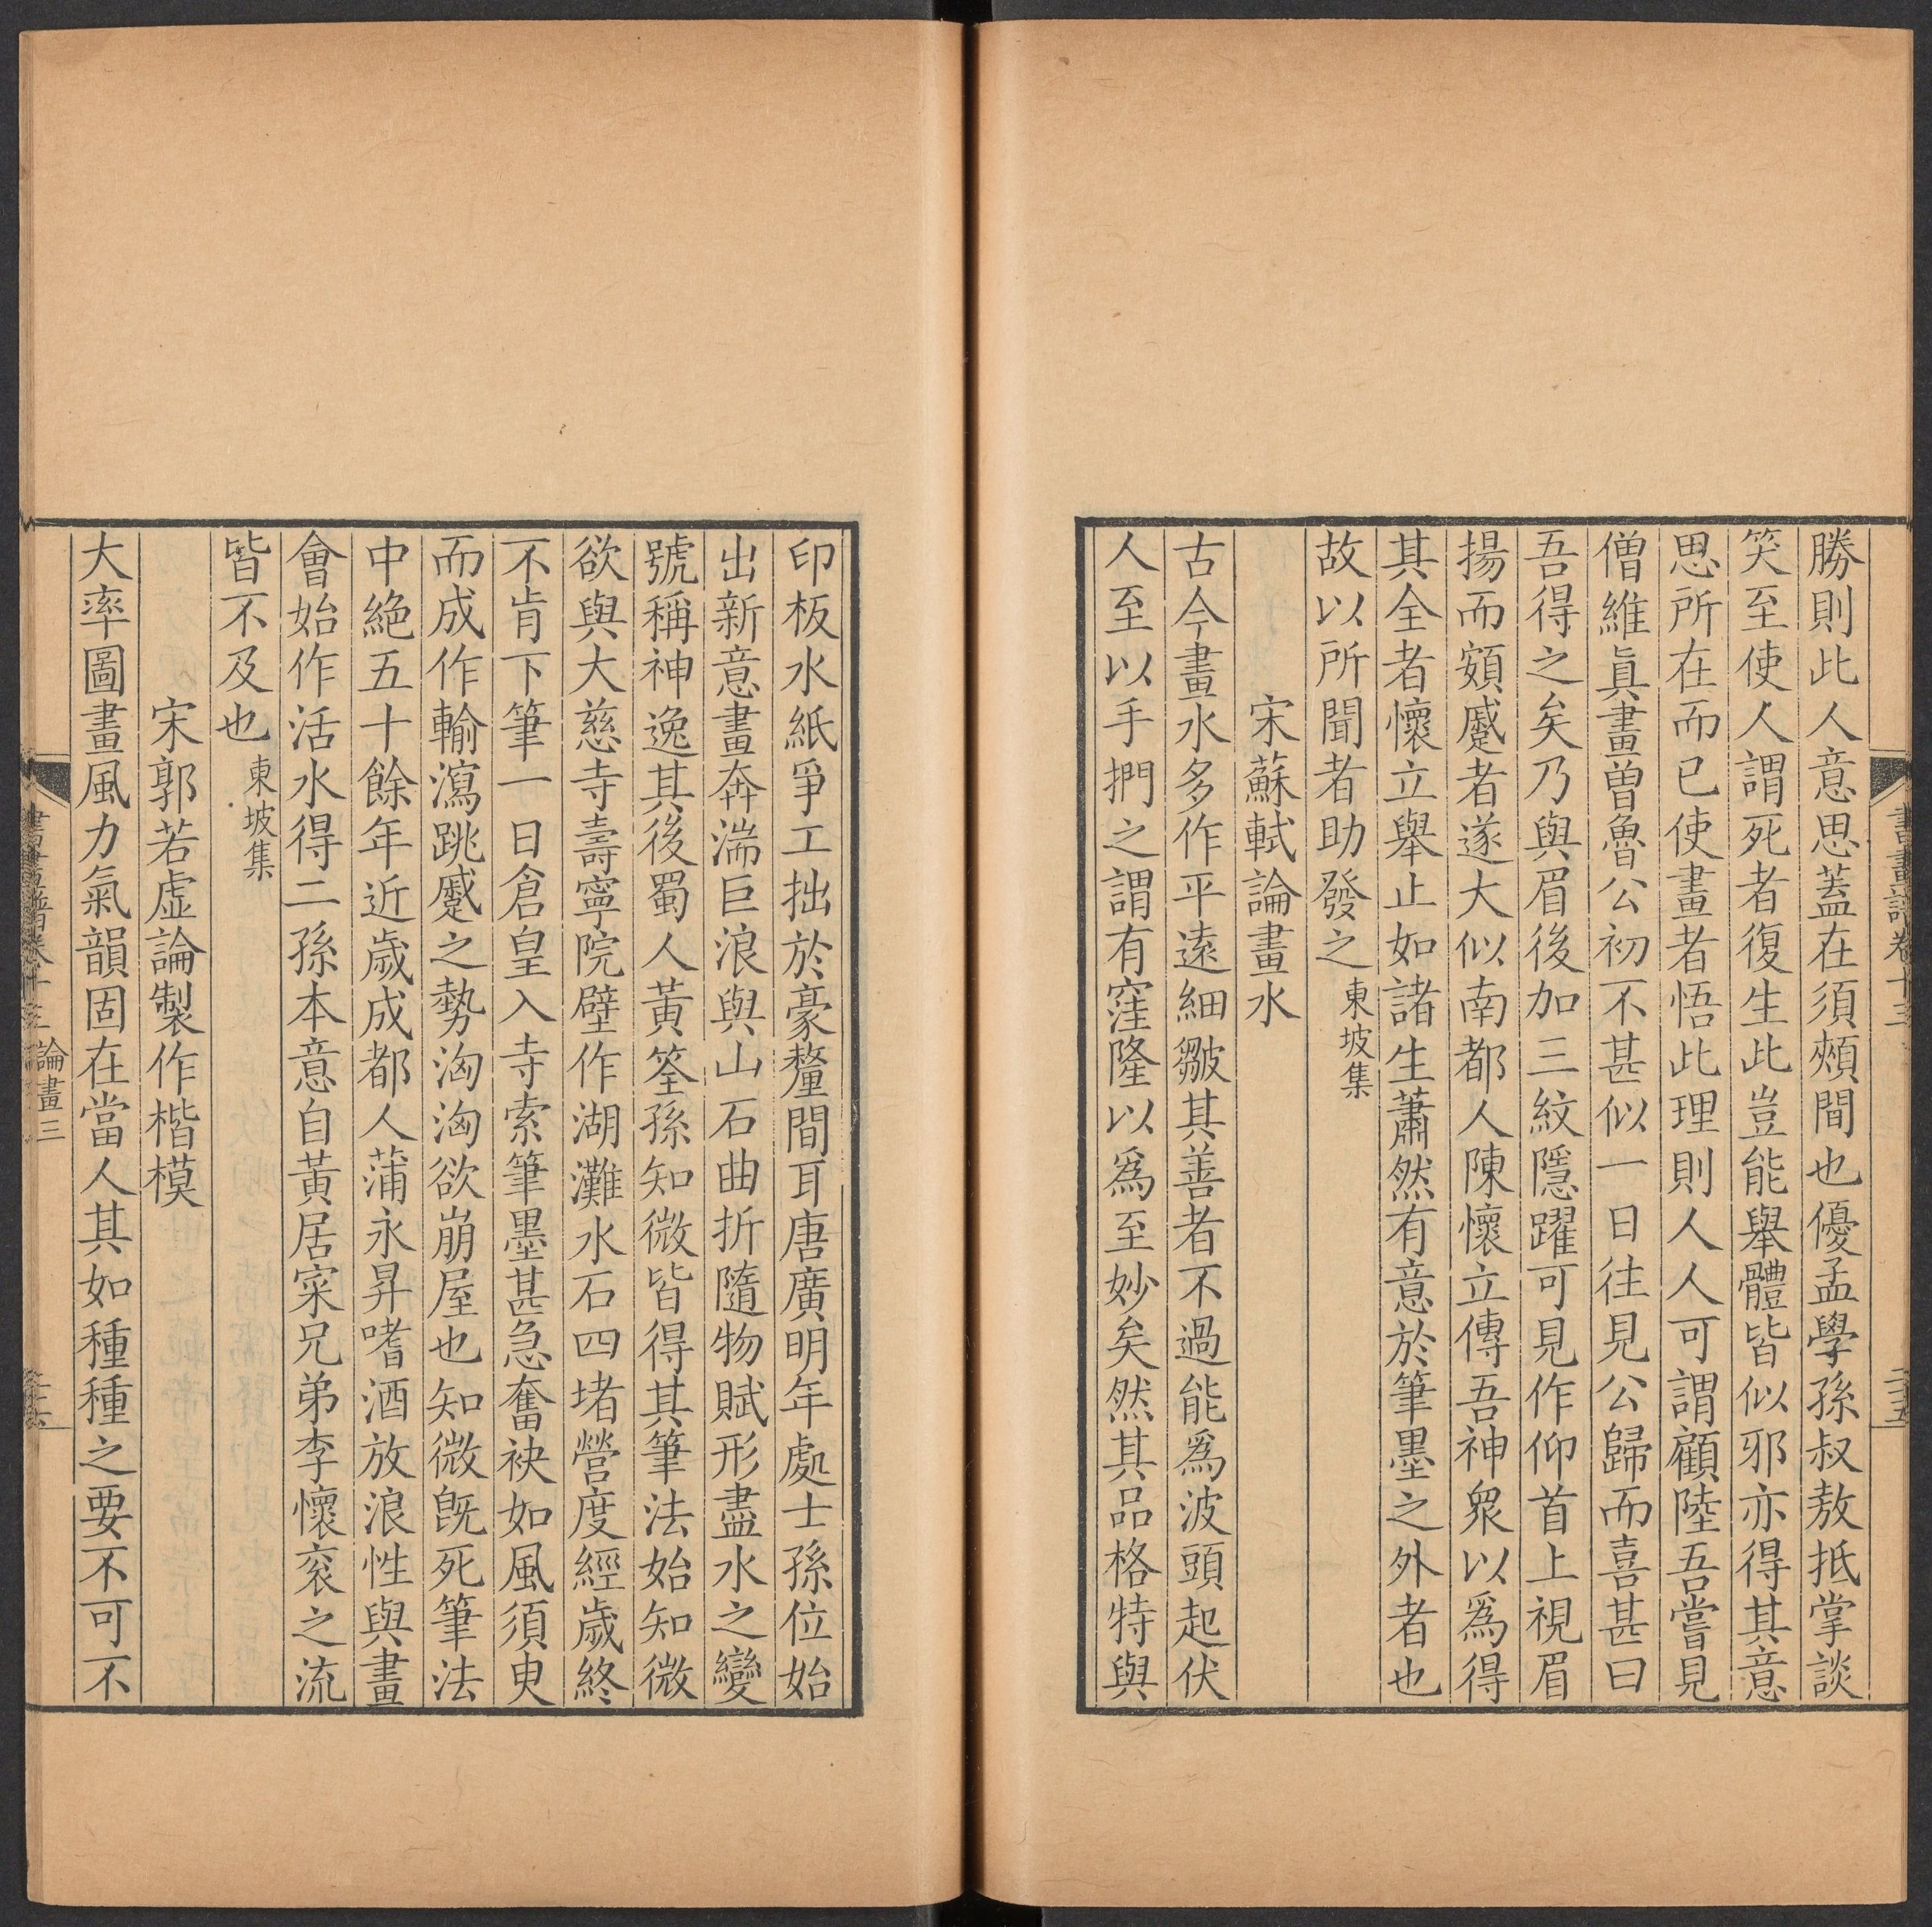 勝則此人意思蓋在須頰間也優孟學孫叔敖抵掌談
笑至使人謂死者復生此豈能舉體皆似邪亦得其意
思所在而已使畫者悟此理則人人可謂顧陸吾嘗見
僧維眞畫曾魯公初不甚似一日往見公歸而喜甚曰
吾得之矣乃與眉後加三紋隱躍可見作仰首上視眉
揚而頞蹙者遂大似南都人陳懷立傳吾神衆以爲得
其全者懷立舉止如諸生蕭然有意於筆墨之外者也
故以所聞者助發之 東坡集
宋蘇軾論畫水
古今畫水多作平遠細皺其善者不過能爲波頭起伏
人至以手捫之謂有窪隆以爲至妙矣然其品格特與
印板水紙爭工拙於豪釐間耳唐廣明年處士孫位始
出新意畫奔湍巨浪與山石曲折隨物賦形盡水之變
號稱神逸其後蜀人黃筌孫知微皆得其筆法始知微
欲與大慈寺壽寧院壁作湖灘水石四堵營度經歲終
不肯下筆一日倉皇入寺索筆墨甚急奮袂如風須臾
而成作輸瀉跳蹙之勢洶洶欲崩屋也知微旣死筆法
中絶五十餘年近歲成都人蒲永昇嗜酒放浪性與畫
會始作活水得二孫本意自黃居寀兄弟李懷衮之流
皆不及也 東坡集
宋郭若虛論製作楷模
大率圖畫風力氣韻固在當人其如種種之要不可不
論畫三